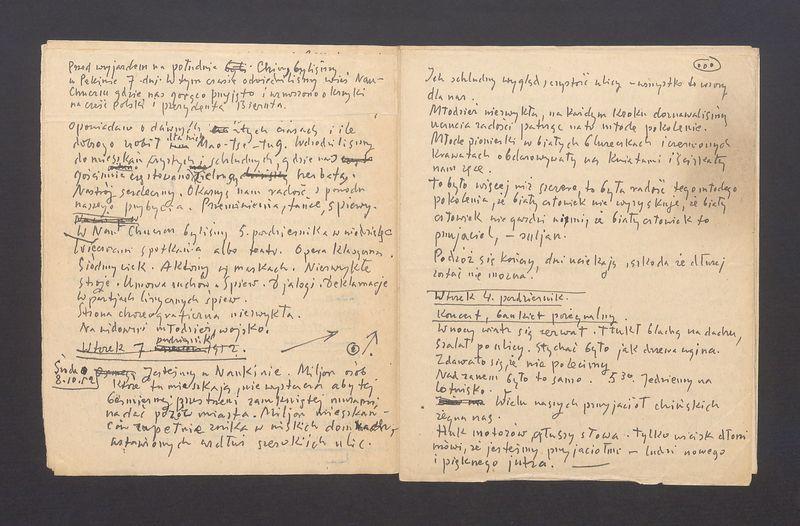 Przed wyjazdem na południe byli Chiny byliśmy
w Pekinie 7 dni. W tym czasie odwiedziliśmy wieś Nan-
Chuceru gdzie nas gorąco przyjęto i wznoszono okrzyki
na cześć Polski i prezydenta Bieruta.
Opowiadano o dawnych złych czasach i ile
dobrego zrobił dla nich Mao-Tse-Tung. Wchodziliśmy
do mieszkań czystych i schludnych, gdzie nas
gościnnie częstowano zieloną herbatą.
Nastrój serdeczny. Okazuj nam radość z powodu
naszego przybycia. Przemówienia, tańce, śpiewy.
W Nan Chuceru byliśmy 5. października w niedzielę
Wieczorami spotkania albo teatr. Opera klasyczna.
Siódmy wiek. Aktorzy w maskach. Niezwykłe
stroje. Umowa ruchów. Śpiew. Dialogi. Deklamacje
w partjach lirycznych śpiew.
Strona choreograficzna niezwykła.
Na widowni młodzież, wojsko.
Wtorek 7 październik 1952
6
Środa
8.10.52
Jesteśmy w Nankinie. Miljon osób
które tu mieszkają nie wystarcza aby tej
bezmiernej przestrzeni zamkniętej murami
nadać pozór miasta. Miljon mieszkań-
ców zupełnie znika w niskich domkach,
ustawionych wzdłuż szerokich ulic.
000
Ich schludny wygląd, czystość ulicy – wszystko to wzory
dla nas.
Młodzież niezwykła, na każdym kroku doznawaliśmy
uczucia radości patrząc na to młode pokolenie.
Młode pionierki w białych bluzkach i czerwonych
krawatach obdarowywały nas kwiatami i ściskały
nam ręce.
To było więcej niż szczere, to była radość tego młodego
pokolenia, że biały człowiek nie wyzyskuje, że biały
człowiek nie gardzi nimi, że biały człowiek to
przyjaciel, –
Podróż się kończy, dni uciekają, szkoda że dłużej
zostać nie można.
Wtorek 4. październik.
Koncert, bankiet pożegnalny.
W nocy wiatr się zerwał. Tłukł blachą na dachu,
szalał po ulicy. Słychać było jak drzewa
Zdawało się, że nie polecimy.
Nad ranem było to samo. 5 30. Jedziemy na
lotnisko.
Wielu naszych przyjaciół chińskich
żegna nas.
Huk motorów głuszy słowa. Tylko uścisk dłoni
mówi, że jesteśmy przyjaciółmi – ludzi nowego
i pięknego jutra.